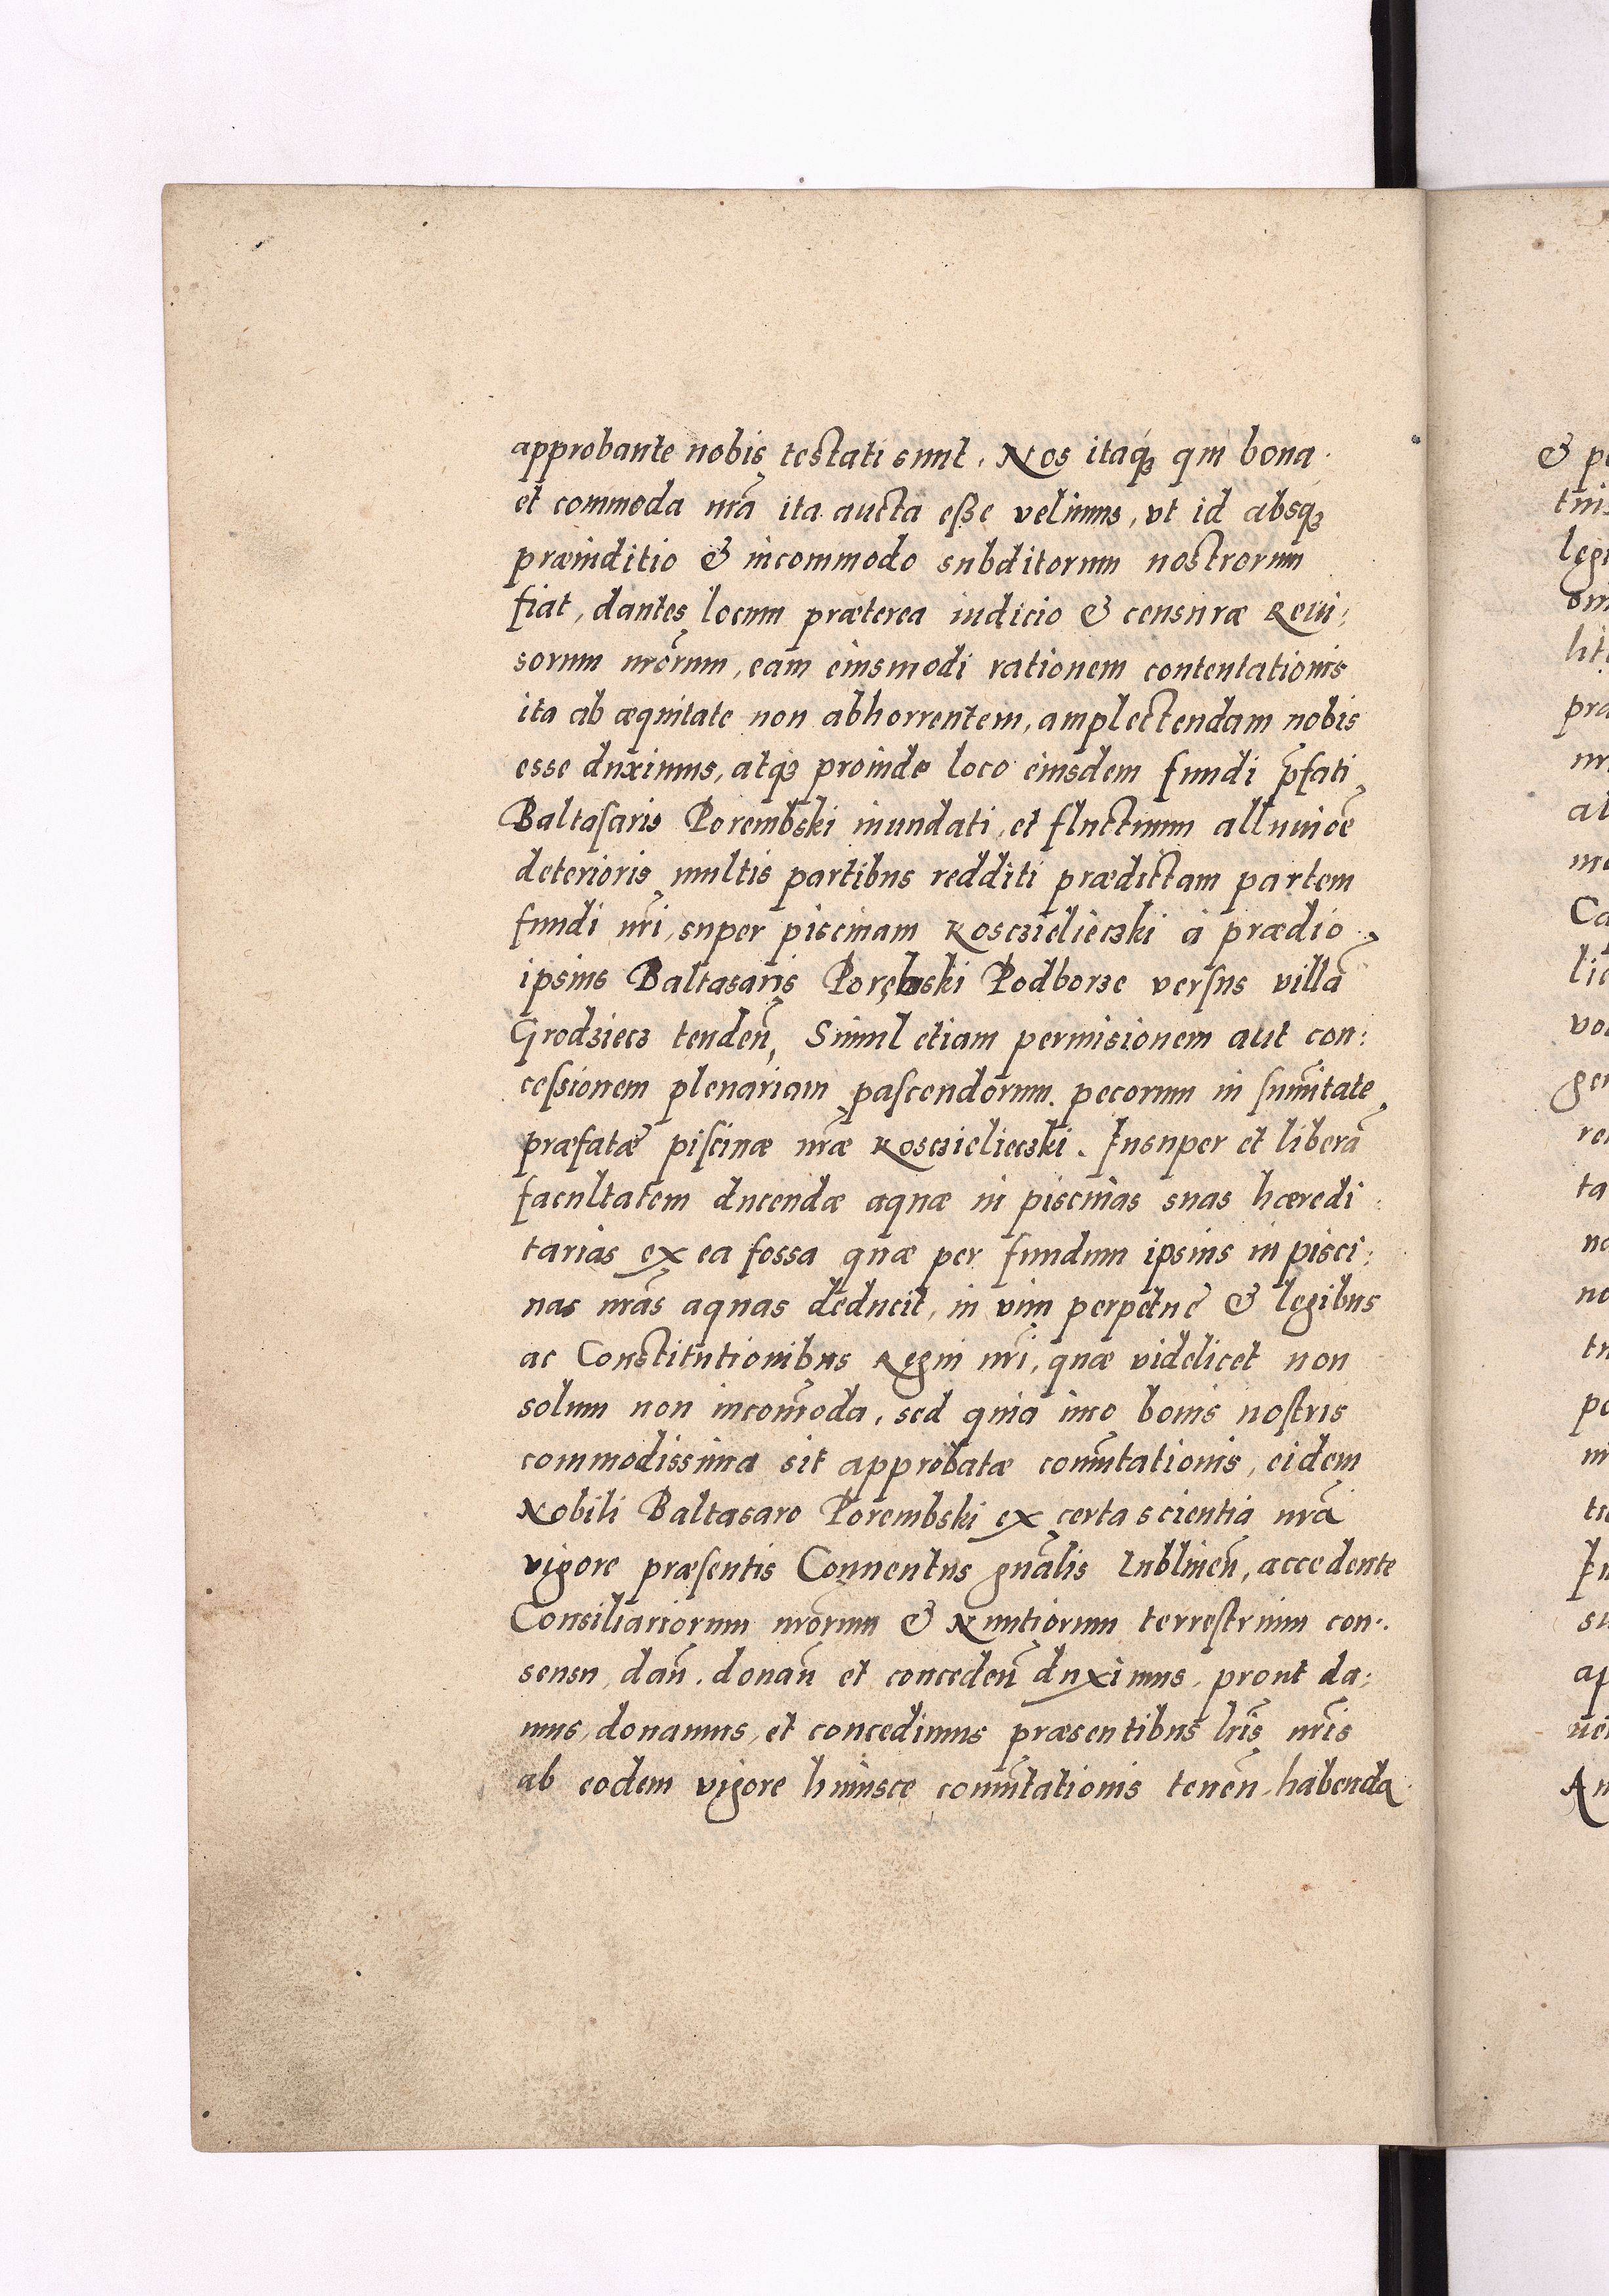 approbante nobis testati sunt. Nos itaq́ꝫ qui bona
et commoda nr̃a ita aucta eße velimus, vt id absq́ꝫ
præiuditio & incommodo subditorum nostrorum
fiat, dantes locum præterea iudicio & censuræ Reui:
sorum nr̃orum, eam eiusmodi rationem contentationis
ita ab æquitate non abhorrentem, amplectendam nobis
esse duximus, atq́ꝫ proinde loco eiusdem fundi p̃fati
Baltasaris Porembski inundati, et fluctuum alluuiõe
deterioris multis partibus redditi prædictam partem
fundi nr̃i, super piscinam Kosczielieczki à prædio
ipsius Baltasaris Porębski Podborze versus villã
Grodziecz tendeñ, Simul etiam permisionem aut con:
cessionem plenariam pascendorum pecorum in sum̃itate
præfatæ piscinæ nr̃æ Kosczielieczki. Insuper et liberã
facultatem ducendæ aquæ in piscinas suas hæredi:
tarias ex ea fossa quæ per fundum ipsius in pisci:
nas nr̃as aquas deducit, in vim perpetuẽ & legibus
ac Constitutionibus Regni nr̃i, quæ videlicet non
solum non incom̃oda, sed quia imo bonis nostris
commodissima sit approbatæ com̃utationis, eidem
Nobili Baltasaro Porembski ex certa scientia nr̃a
vigore præsentis Conuentus gñalis Lublineñ, accedente
Consiliariorum nr̃orum & Nuntiorum terrestrium con:
sensu, dañ. donañ et concedeñ duximus, prout da:
mus, donamus, et concedimus præsentibus lr̃is nr̃is
ab eodem vigore huiusce com̃utationis teneñ, habenda